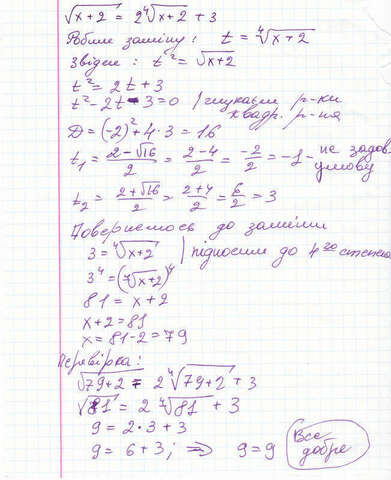 √x+2 = 2⁴√x+2 + 3
Робим заміну: t = ⁴√x+2
Звідси: t² = √x+2
t² = 2t + 3
t² - 2t - 3 = 0 / шукаєм р-ки квадр. р-ня
D = (-2)² + 4·3 = 16
t₁ = (2-√16)/2 = (2-4)/2 = -2/2 = -1 - не задов. умову
t₂ = (2+√16)/2 = (2+4)/2 = 6/2 = 3
Повертаємось до заміни
3 = ⁴√x+2 | підносим до 4го степеня
3⁴ = (⁴√x+2)⁴
81 = x + 2
x + 2 = 81
x = 81 - 2 = 79
Перевірка:
√79+2 = 2⁴√79+2 + 3
√81 = 2⁴√81 + 3
9 = 2·3 + 3
9 = 6 + 3; => 9 = 9
Все добре